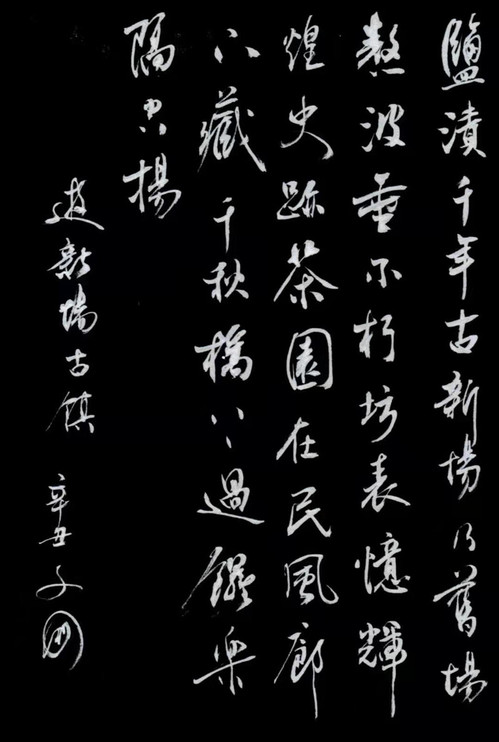 鹽漬千年古新場乃舊場
熬波垂不朽坊表憶輝
煌史跡茶園在民風廊
下藏千秋橋下過樂
隔空揚
遊新場古鎮 辛丑